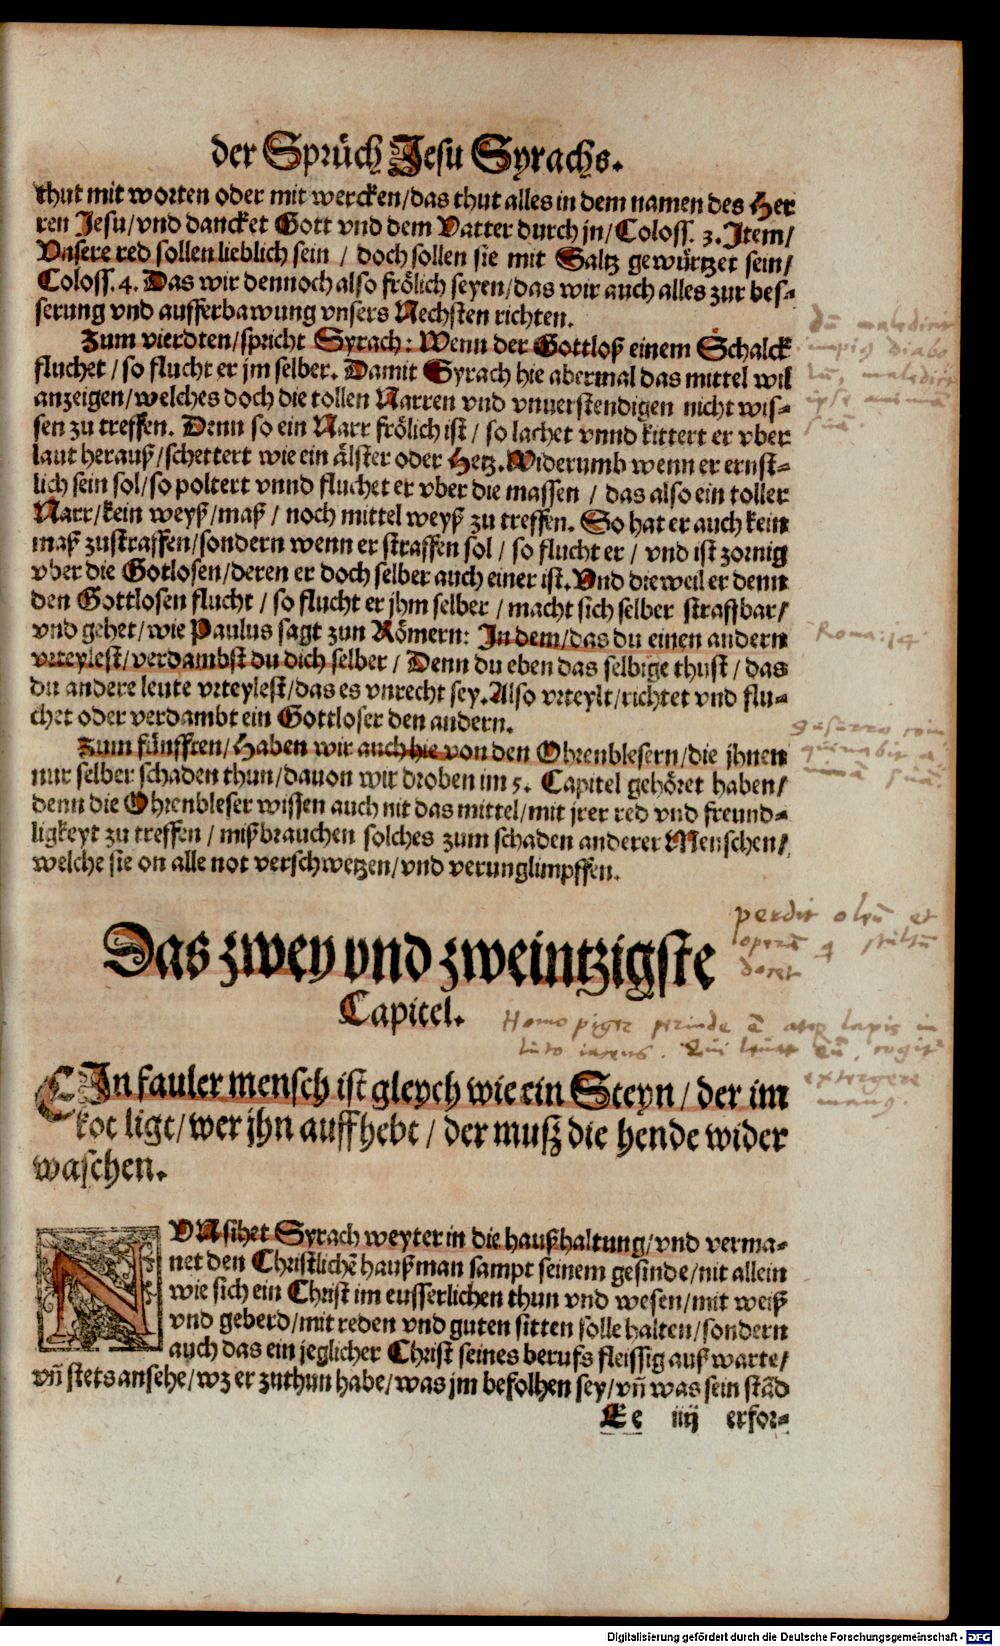 der Sprüch Jesu Syrachs.
thut mit worten oder mit wercken/das thut alles in dem namen des Her
ren Jesu/vnd dancket Gott vnd dem Vatter durch jn/Coloss. 3. Item/
Vnsere red sollen lieblich sein / doch sollen sie mit Saltz gewürtzet sein/
Coloss. 4. Das wir dennoch also frölich seyen/das wir auch alles zur bes-
serung vnd aufferbawung vnsers Nechsten richten.
Zum vierdten/spricht Syrach: Wenn der Gottloß einem Schalck
fluchet / so flucht er jm selber. Damit Syrach hie abermal das mittel wil
anzeigen/welches doch die tollen Narren vnd vnuerstendigen nicht wis-
sen zu treffen. Denn so ein Narr frölich ist / so lachet vnnd kittert er vber
laut herauß/schettert wie ein älster oder Hetz. Widerumb wenn er ernst-
lich sein sol/so poltert vnnd fluchet er vber die massen / das also ein toller
Narr/kein weyß/maß / noch mittel weyß zu treffen. So hat er auch kein
maß zustraffen/sondern wenn er straffen sol / so flucht er / vnd ist zornig
vber die Gotlosen/deren er doch selber auch einer ist. Vnd dieweil er denn
den Gottlosen flucht / so flucht er jhm selber / macht sich selber straffbar/
vnd gehet/wie Paulus sagt zun Römern: In dem/das du einen andern
vrteylest/verdambst du dich selber / Denn du eben das selbige thust / das
du andere leute vrteylest/das es vnrecht sey. Also vrteylt/richtet vnd flu-
chet oder verdambt ein Gottloser den andern.
Zum fünfften/Haben wir auch hie von den Ohrenblesern/die jhnen
nur selber schaden thun/dauon wir droben im 5. Capitel gehöret haben/
denn die Ohrenbleser wissen auch nit das mittel/mit jrer red vnd freund-
ligkeyt zu treffen / mißbrauchen solches zum schaden anderer Menschen/
welche sie on alle not verschwetzen/vnd verunglimpffen.
dū maledicit
impiꝰ diabo
lū, maledicit
ipse animā
suā.
Roma: 14
susurro coin
quinabit a-
nimā suā.
perdit oleū et
operā q stultū
docet
Das zwey vnd zweintzigste
Capitel.
Homo piger perinde ē atq lapis in
luto iacens. Qui leuat eū, cogit
extergere
manꝰ.
EIn fauler mensch ist gleych wie ein Steyn / der im
kot ligt/wer jhn auffhebt / der muß die hende wider
waschen.
NVN sihet Syrach weyter in die haußhaltung/vnd verma-
net den Christlichē haußman sampt seinem gesinde/nit allein
wie sich ein Christ im eusserlichen thun vnd wesen/mit weiß
vnd geberd/mit reden vnd guten sitten solle halten/sondern
auch das ein jeglicher Christ seines berufs fleissig auß warte/
vñ stets ansehe/wz er zuthun habe/was jm befolhen sey/vñ was sein stād
Ee iiij erfor-
Digitalisierung gefördert durch die Deutsche Forschungsgemeinschaft - DFG